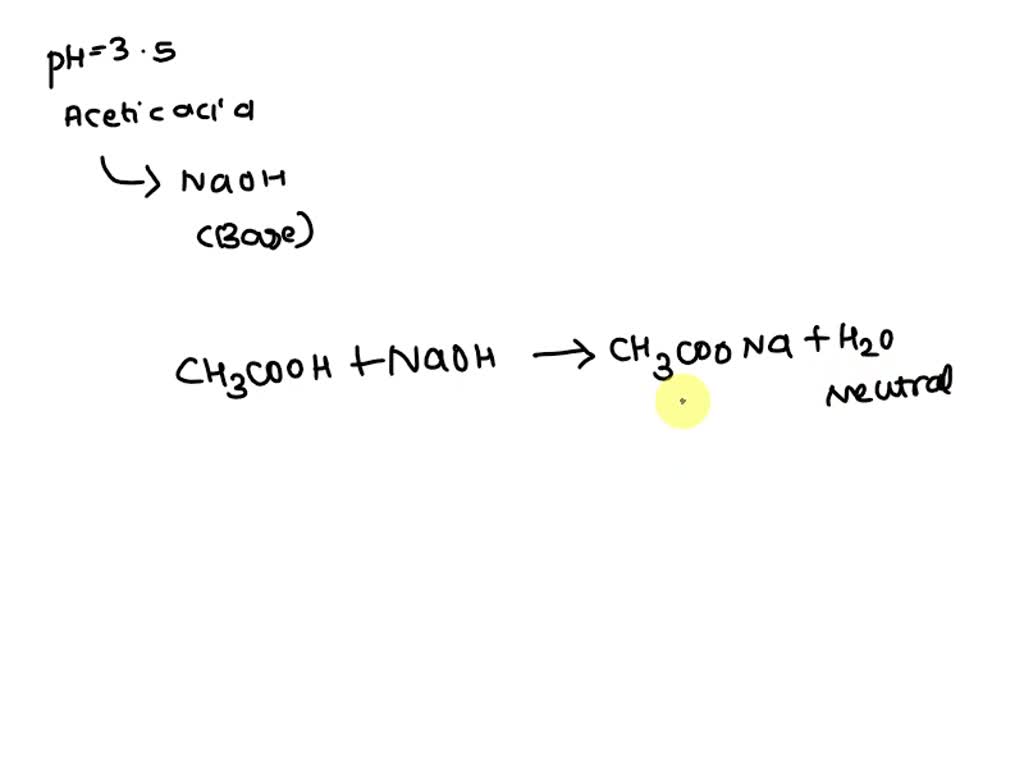 pH=3.5
Acetic acid
↳ NaOH
(Base)
CH₃COOH + NaOH → CH₃COONa + H₂O
Neutral